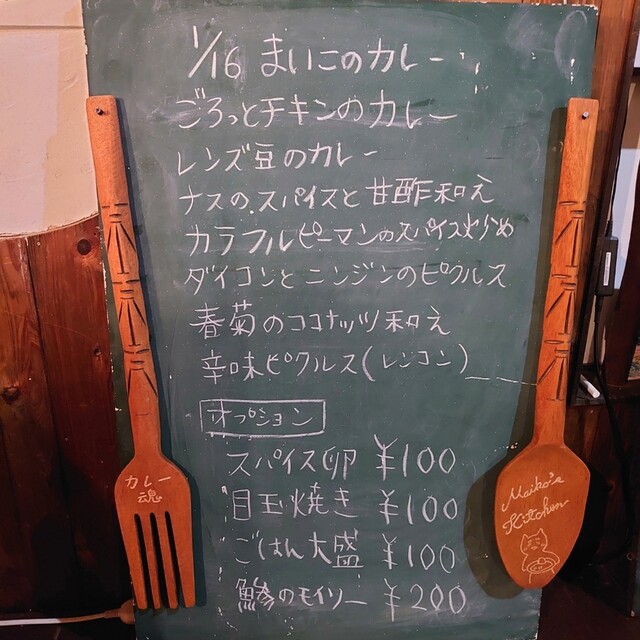 1/16 まいこのカレー
ごろっとチキンのカレー
レンズ豆のカレー
ナスのスパイスと甘酢和え
カラフルピーマンのスパイス炒め
ダイコンとニンジンのピクルス
春菊のココナッツ和え
辛味ピクルス(レンコン)
オプション
スパイス卵 ¥100
目玉焼き ¥100
ごはん大盛 ¥100
鯵のモイリー ¥200
カレー
魂
Maiko's
Kitchen